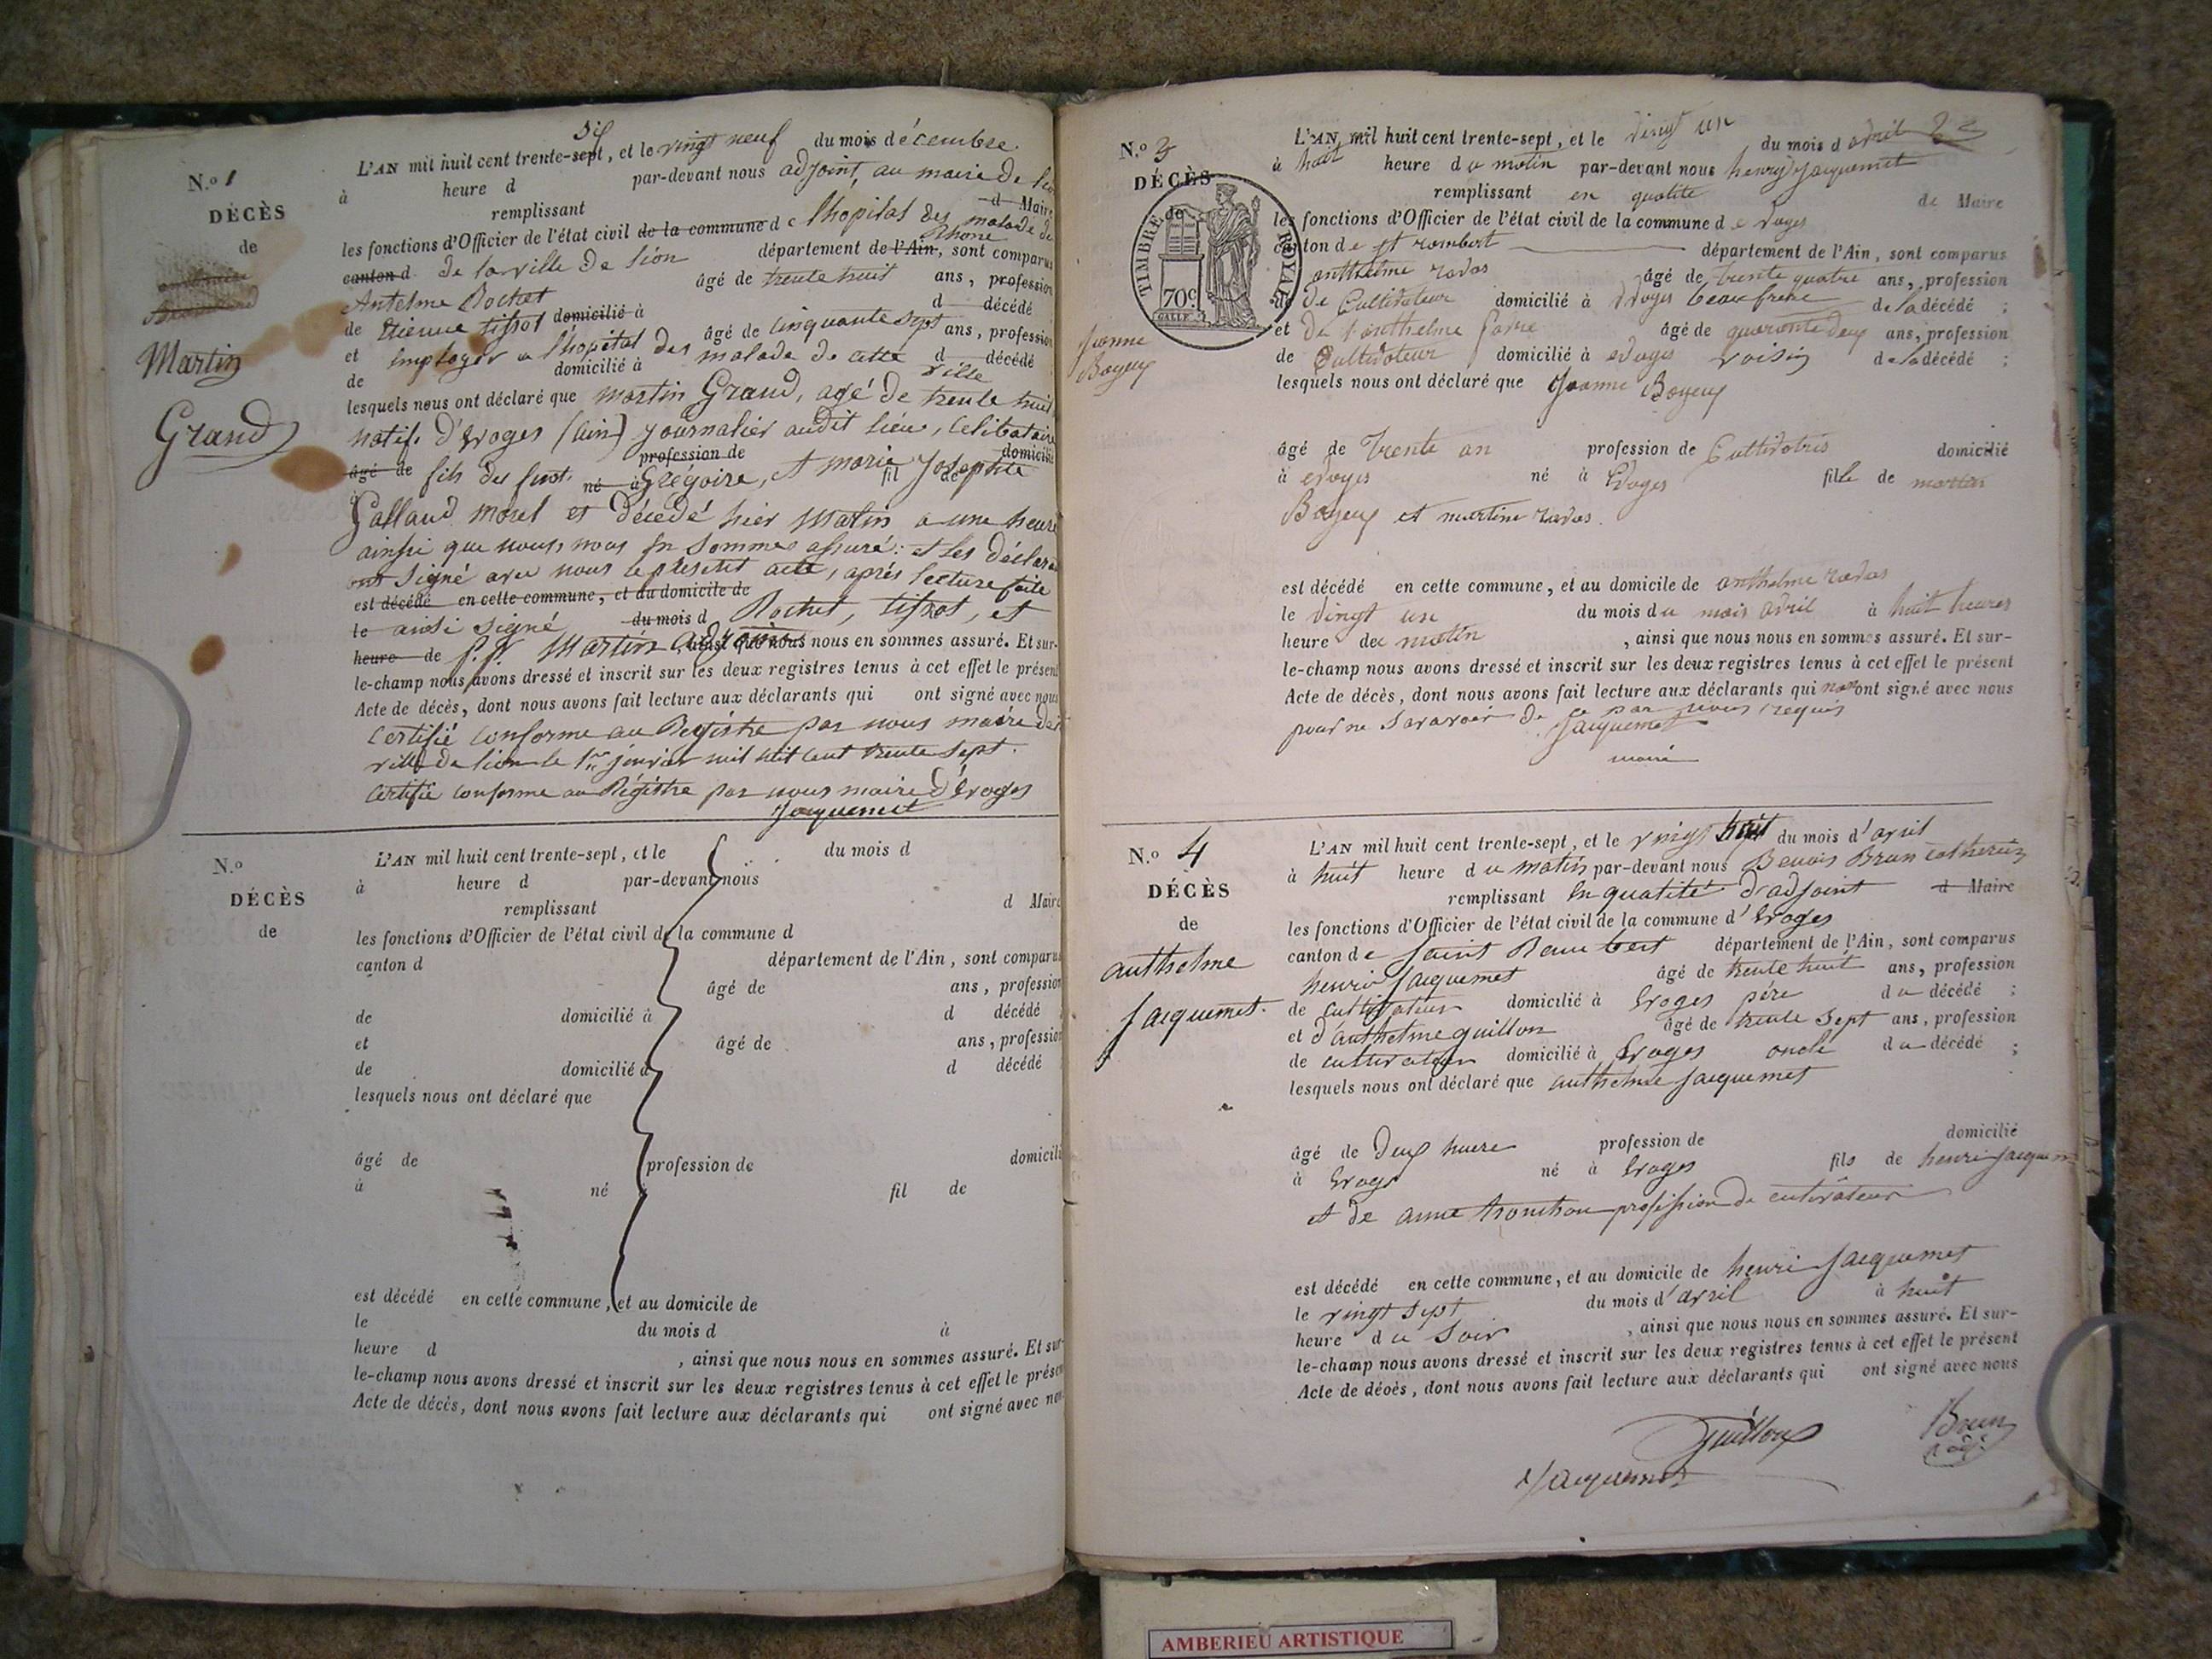 N.o 1
DÉCÈS
de
Martin
Grand
six
L'AN mil huit cent trente-sept, et le vingt neuf du mois décembre.
à heure d par-devant nous adjoint, au maire de
remplissant d Maire
les fonctions d'Officier de l'état civil de la commune d e lhopital des malade de
canton d de la ville de lion département de l'Ain, sont comparus
Rhone
Antelme Rochet âgé de trente huit ans, profession
de domicilié à d décédé
et Etienne tissot âgé de cinquante sept ans, profession
de employer a lhopital des malade de cette ville domicilié à d décédé
lesquels nous ont déclaré que martin Grand, agé de trente huit
natif. d'Evoges (ain) journalier audit lieu, Celibataire
âgé de profession de domicilié
fils du feu né à Grégoire, et marie Josephte fil de
Galland morel et décedé hier matin a une heure
ainsi que nous nous en sommes assuré. et les déclara
ont signé avec nous le présent acte, après lecture faite
est décédé en cette commune, et au domicile de
le ainsi signé du mois d Rochet, tissot, et
heure de Martin adjoint ainsi que nous nous en sommes assuré. Et sur-
le-champ nous avons dressé et inscrit sur les deux registres tenus à cet effet le présent
Acte de décès, dont nous avons fait lecture aux déclarants qui ont signé avec nous
Certifié conforme au Registre par nous maire de
ville de lion le 1er janvier mil huit cent trente sept.
Certifié conforme au Régistre par nous maire d'Evoges
Jacquemet
N.o
DÉCÈS
de
L'AN mil huit cent trente-sept, et le du mois d
à heure d par-devant nous
remplissant d Maire
les fonctions d'Officier de l'état civil de la commune d
canton d département de l'Ain, sont comparus
âgé de ans, profession
de domicilié à d décédé
et âgé de ans, profession
de domicilié à d décédé
lesquels nous ont déclaré que
âgé de profession de domicilié
à né fil de
est décédé en cette commune, et au domicile de
le du mois d à
heure d , ainsi que nous nous en sommes assuré. Et sur-
le-champ nous avons dressé et inscrit sur les deux registres tenus à cet effet le présent
Acte de décès, dont nous avons fait lecture aux déclarants qui ont signé avec nous
N.o 3
DÉCÈS
de
TIMBRE ROYAL
70c
Jeanne
Boyeux
L'AN mil huit cent trente-sept, et le vingt un du mois d avril
à huit heure du matin par-devant nous henry Jacquemet
remplissant en qualité de Maire
les fonctions d'Officier de l'état civil de la commune d e Evoges
canton de st rambert département de l'Ain, sont comparus
anthelme ravas âgé de trente quatre ans, profession
de Cultivateur domicilié à Evoges beau frere de la décédé ;
et de anthelme favre âgé de quarante deux ans, profession
de Cultivateur domicilié à Evoges voisin de la décédé ;
lesquels nous ont déclaré que Jeanne Boyeux
âgé de trente an profession de Cultivatris domicilié
à Evoges né à Evoges fille de martin
Boyeux et martine ravas.
est décédé en cette commune, et au domicile de anthelme ravas
le vingt un du mois du mois avril à huit heures
heure de matin , ainsi que nous nous en sommes assuré. Et sur-
le-champ nous avons dressé et inscrit sur les deux registres tenus à cet effet le présent
Acte de décès, dont nous avons fait lecture aux déclarants qui non ont signé avec nous
pour ne savavoir de ce par nous requis
Jacquemet
maire
N.o 4
DÉCÈS
de
anthelme
Jacquemet.
L'AN mil huit cent trente-sept, et le vingt huit du mois d'avril
à huit heure du matin par-devant nous Benois Brun
remplissant En qualité d'adjoint d Maire
les fonctions d'Officier de l'état civil de la commune d'Evoges
canton de Saint Rambert département de l'Ain, sont comparus
henri Jacquemet âgé de trente huit ans, profession
de cultivateur domicilié à Evoges pére du décédé ;
et d'anthelme guillon âgé de trente sept ans, profession
de cultivateur domicilié à Evoges oncle du décédé ;
lesquels nous ont déclaré que anthelme Jacquemet
âgé de Deux huere profession de domicilié
à Evoges né à Evoges fils de henri Jacquemet
et de anne tronchon profession de cutivateur
est décédé en cette commune, et au domicile de henri Jacquemet
le vingt sept du mois d'avril à huit
heure du soir , ainsi que nous nous en sommes assuré. Et sur-
le-champ nous avons dressé et inscrit sur les deux registres tenus à cet effet le présent
Acte de décès, dont nous avons fait lecture aux déclarants qui ont signé avec nous
Guilloux Brun
Jacquemet
AMBERIEU ARTISTIQUE